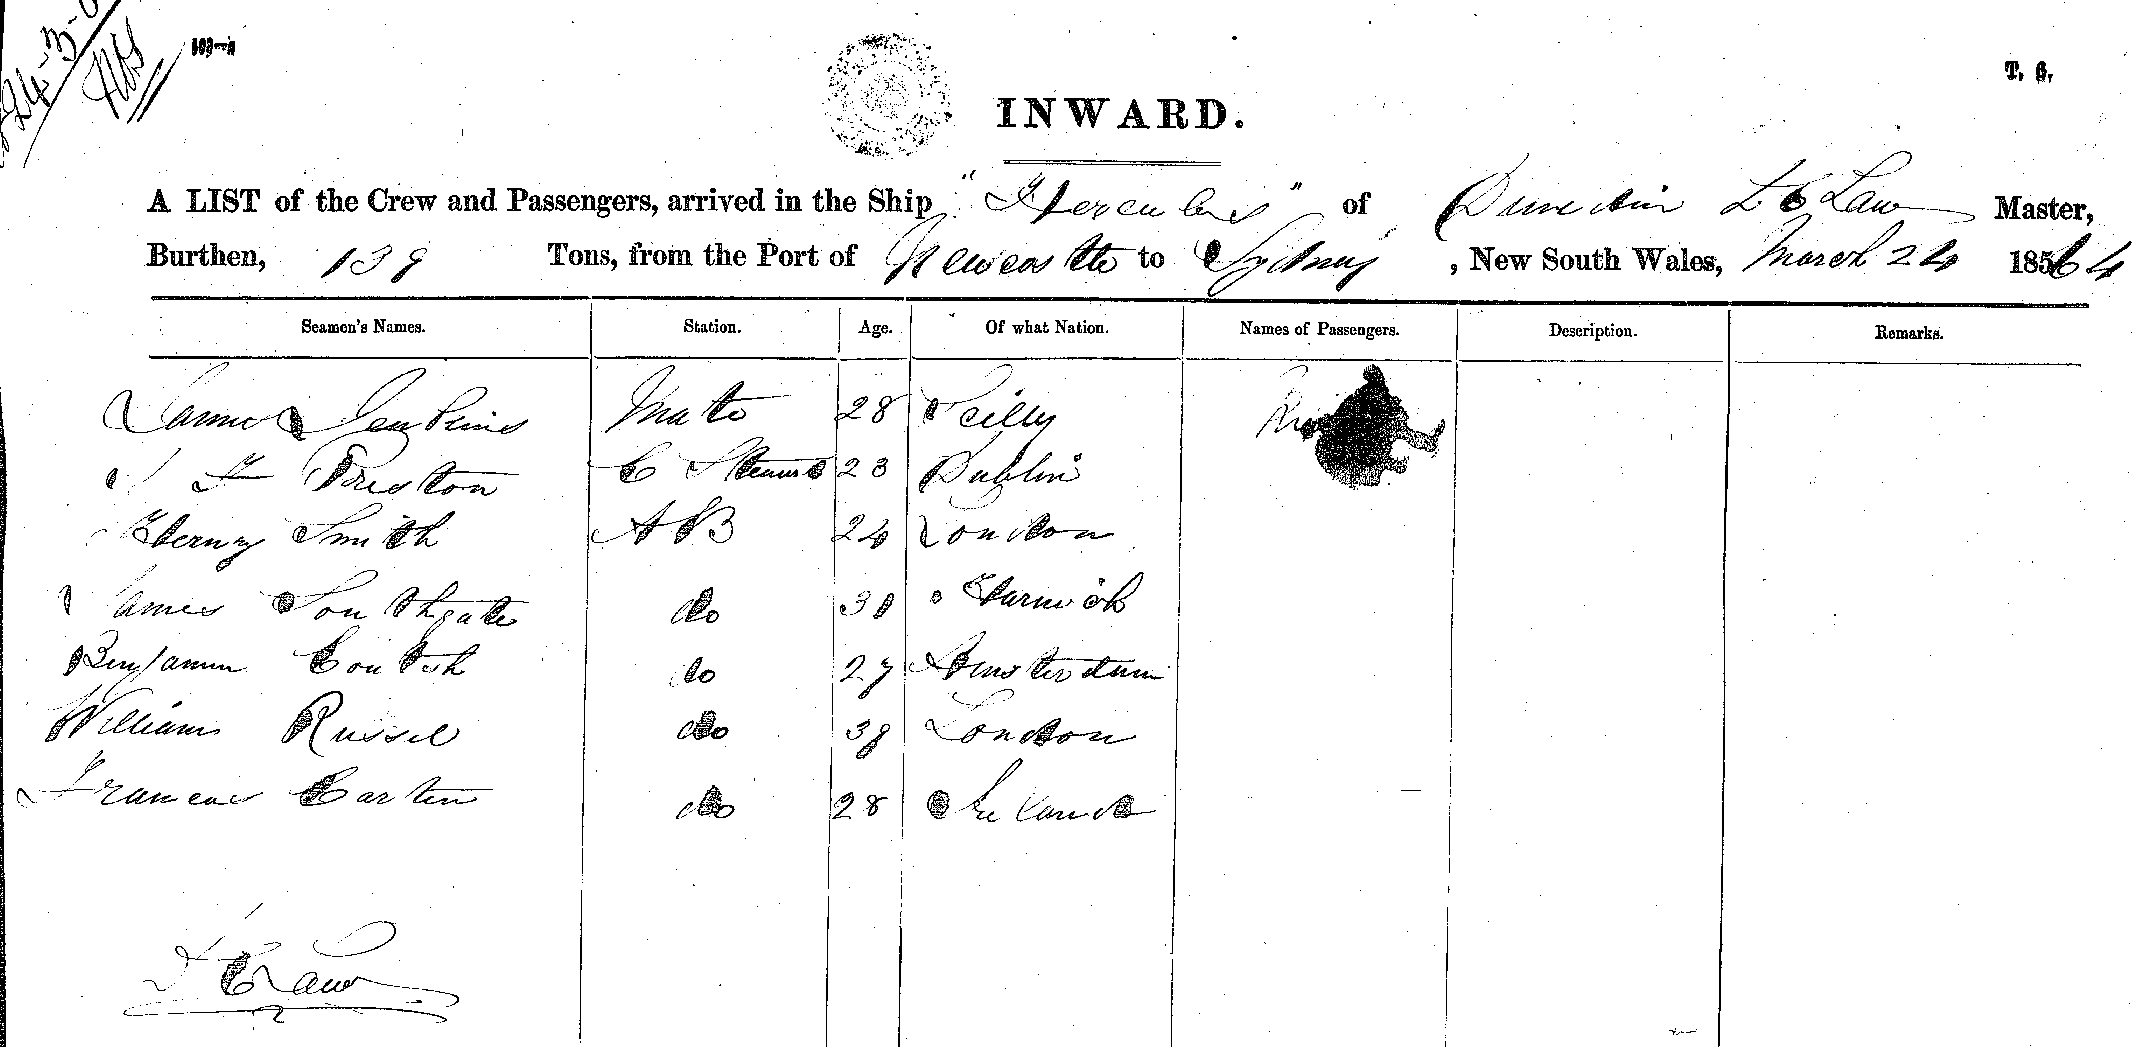 24-3-6
103-a
T. 6.
INWARD.
A LIST of the Crew and Passengers, arrived in the Ship "Hercules" of Dunedin L C Law Master,
Burthen, 139 Tons, from the Port of Newcastle to Sydney, New South Wales, March 24 1864
Seamen's Names. Station. Age. Of what Nation. Names of Passengers. Description. Remarks.
James Jenkins Mate 28 Scilly
J F Preston C Steward 23 Dublin
Henry Smith AB 24 London
James Southgate do 30 Harwich
Benjamin do 27 Amsterdam
William Russel do 38 London
Carten do 28 Ireland
Law